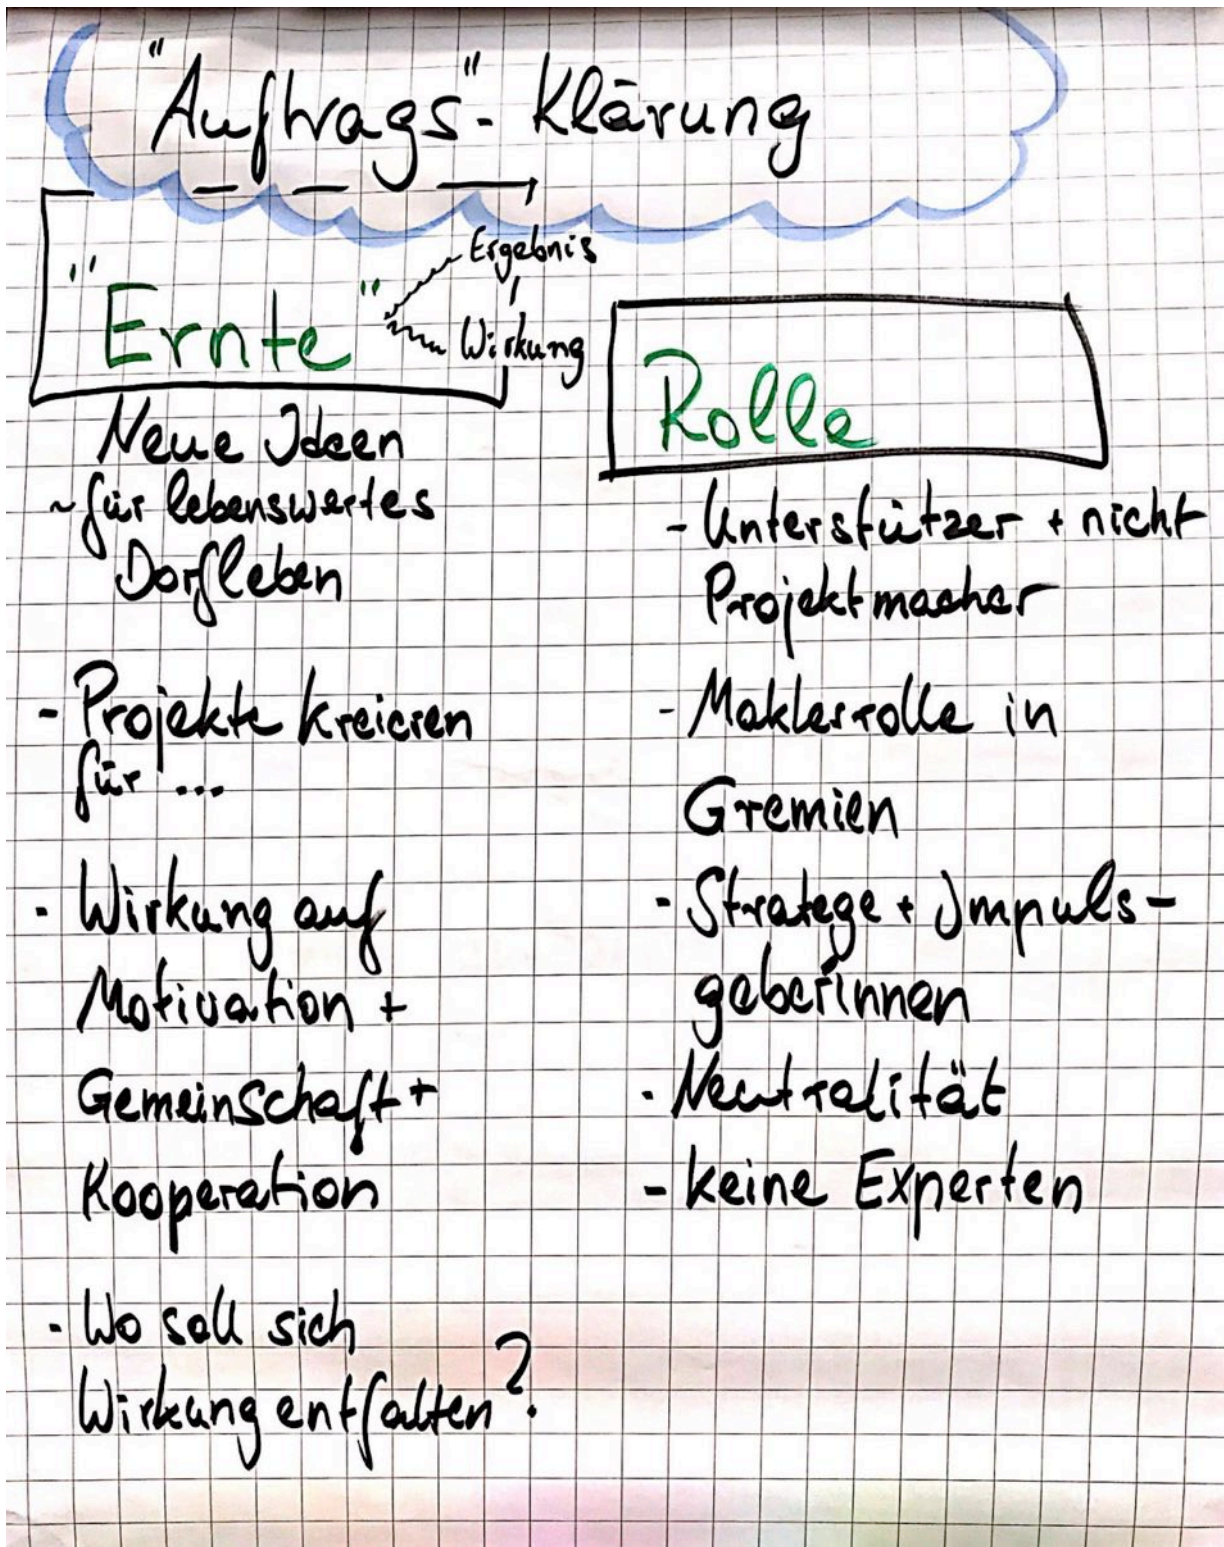 "Auftrags"-Klärung
"Ernte"
Ergebnis
Wirkung
Neue Ideen
~ für lebenswertes
Dorfleben
- Projekte kreieren
für ...
- Wirkung auf
Motivation +
Gemeinschaft +
Kooperation
- Wo soll sich
Wirkung entfalten?
Rolle
- Unterstützer + nicht
Projektmacher
- Maklerrolle in
Gremien
- Stratege + Impuls-
geberinnen
- Neutralität
- keine Experten